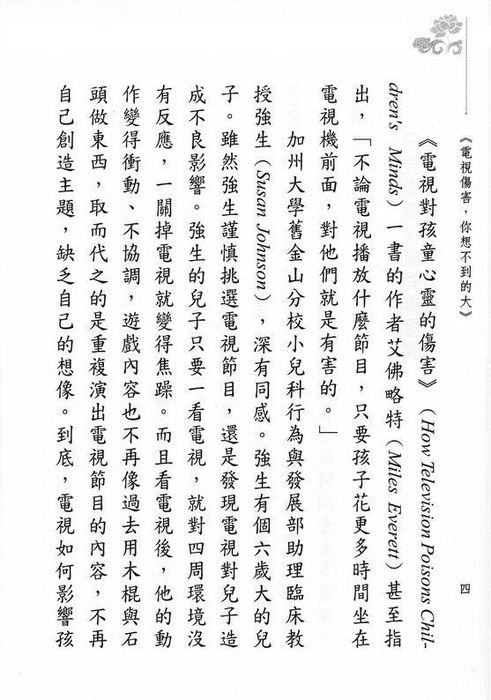 《電視傷害，你想不到的大》
四
《電視對孩童心靈的傷害》（How Television Poisons Chil-
dren's Minds）一書的作者艾佛略特（Miles Everett）甚至指
出，「不論電視播放什麼節目，只要孩子花更多時間坐在
電視機前面，對他們就是有害的。」
加州大學舊金山分校小兒科行為與發展部助理臨床教
授強生（Susan Johnson），深有同感。強生有個六歲大的兒
子。雖然強生謹慎挑選電視節目，還是發現電視對兒子造
成不良影響。強生的兒子只要一看電視，就對四周環境沒
有反應，一關掉電視就變得焦躁。而且看電視後，他的動
作變得衝動、不協調，遊戲內容也不再像過去用木棍與石
頭做東西，取而代之的是重複演出電視節目的內容，不再
自己創造主題，缺乏自己的想像。到底，電視如何影響孩